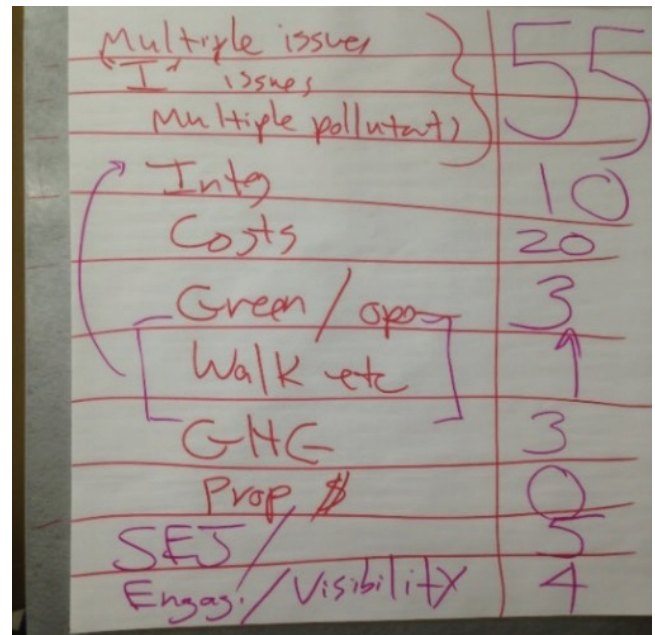 Multiple issues 55
"I" issues
Multiple pollutants
Integ 10
Costs 20
Green / open 3
Walk etc
GHG 3
Prop $ 0
SEJ / 5
Engag. / Visibility 4